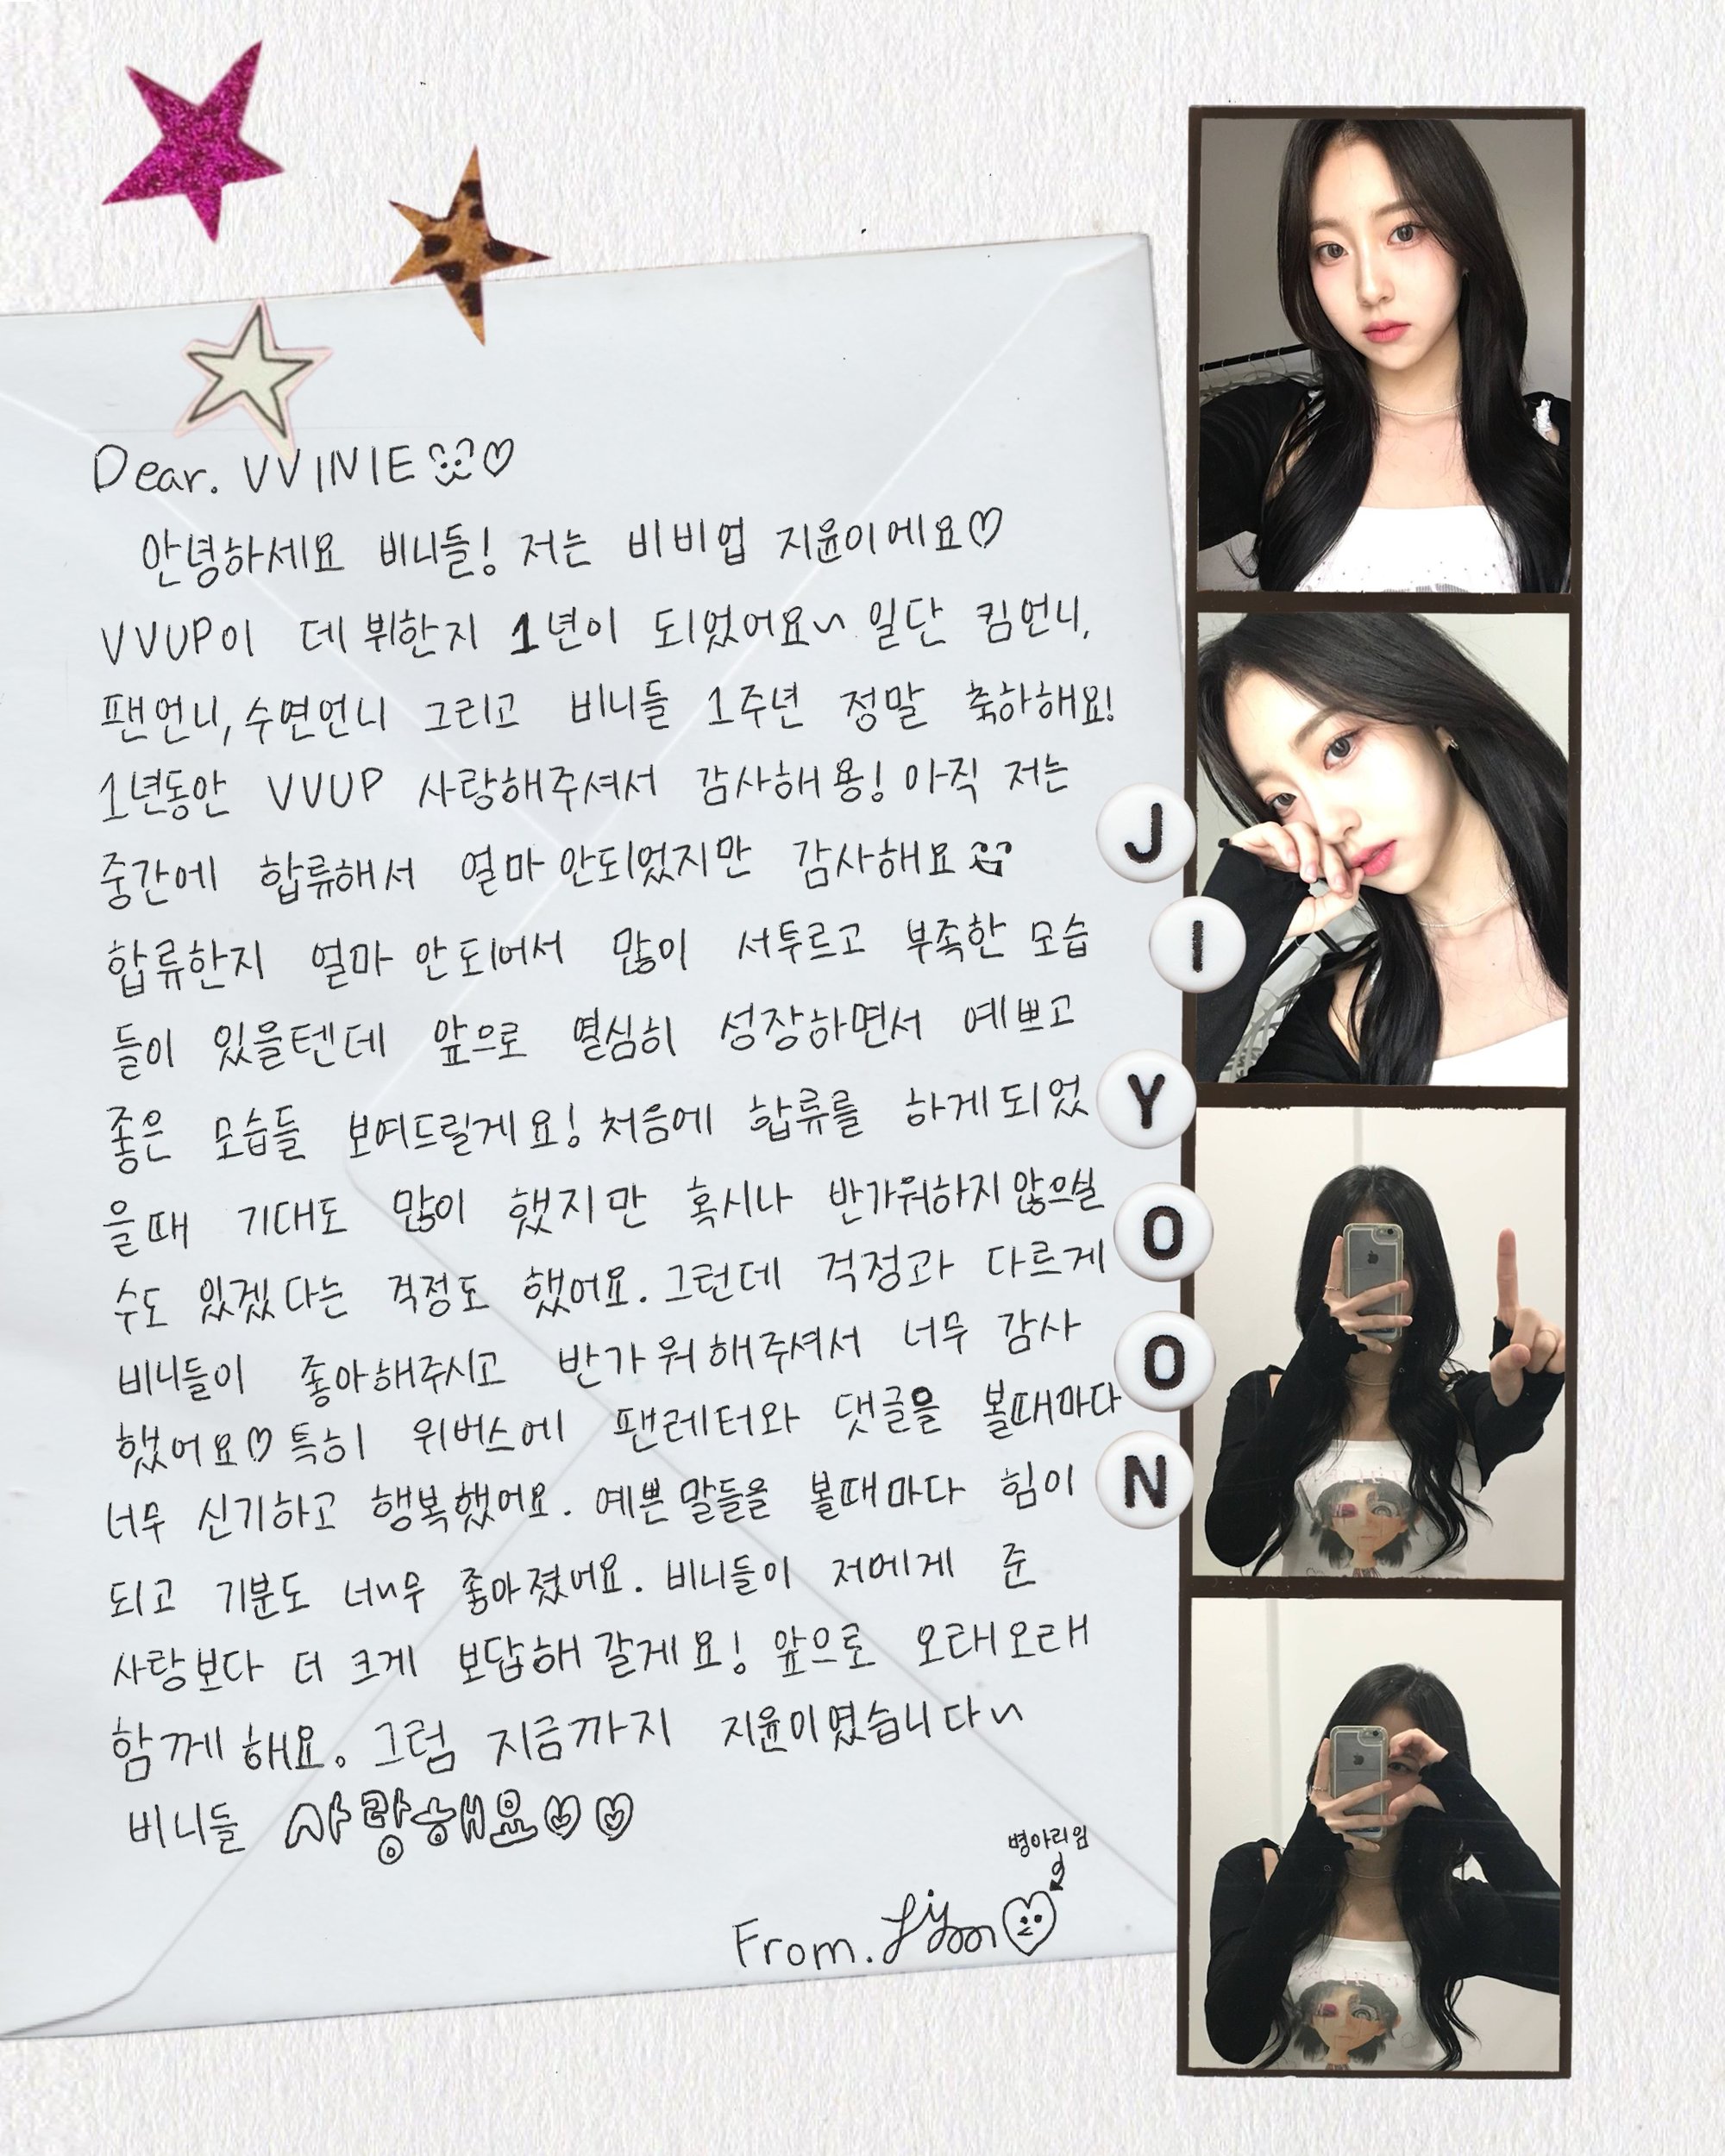 Dear. VVINIE ♡
안녕하세요 비니들! 저는 비비업 지윤이에요♡
VVUP이 데뷔한지 1년이 되었어요~ 일단 킴언니,
팬언니, 수연언니 그리고 비니들 1주년 정말 축하해요!
1년동안 VVUP 사랑해주셔서 감사해용! 아직 저는
중간에 합류해서 얼마 안되었지만 감사해요
합류한지 얼마 안되어서 많이 서투르고 부족한 모습
들이 있을텐데 앞으로 열심히 성장하면서 예쁘고
좋은 모습들 보여드릴게요! 처음에 합류를 하게되었
을때 기대도 많이 했지만 혹시나 반가워하지않으실
수도 있겠다는 걱정도 했어요. 그런데 걱정과 다르게
비니들이 좋아해주시고 반가워해주셔서 너무 감사
했어요♡ 특히 위버스에 팬레터와 댓글을 볼때마다
너무 신기하고 행복했어요. 예쁜말들을 볼때마다 힘이
되고 기분도 너~무 좋아졌어요. 비니들이 저에게 준
사랑보다 더 크게 보답해갈게요! 앞으로 오래오래
함께해요. 그럼 지금까지 지윤이였습니다~
비니들 사랑해요♡♡
병아리임
From. Jiyoon
J
I
Y
O
O
N